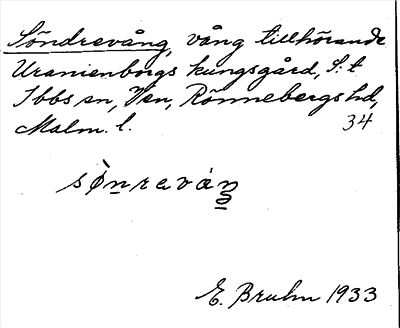 Söndrevång, vång tillhörande
Uranienborgs kungsgård, S:t
Ibbs sn, Ven, Rönnebergs hd,
Malm. l. 34
sǿnrevåŋ
E. Bruhn 1933